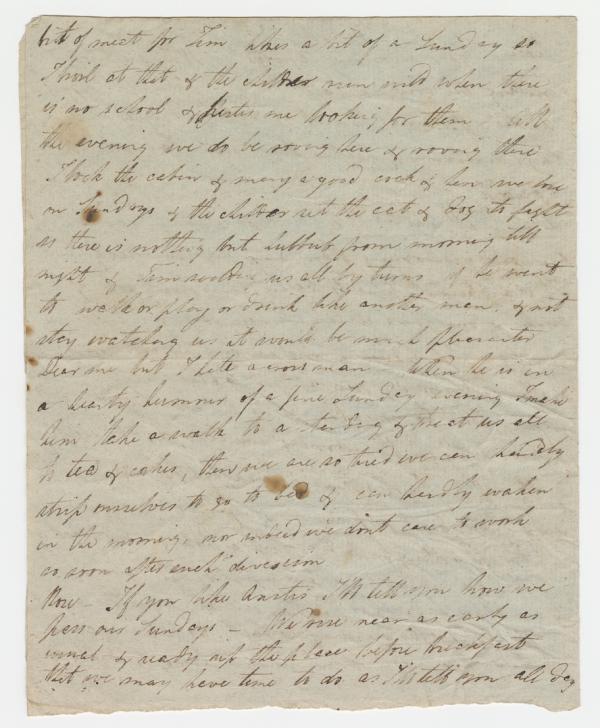 bit of meat for Tim likes a bit of a Sunday so
I boil at that & the childer run wild when there
is no school & me looking for them till
the evening we do be roving here & roving there
I lock the cabin & many a good cock & hen we lose
on Sundays & the childer set the cat & dog to fight
so there is nothing but hubbub from morning till
night & Tim scolding us all by turns if he went
to walk or play or drink like another man, & not
stay watching us it would be much pleasanter
Dear me but I hate a cross man When he is in
a hearty humour of a fine Sunday evening I make
him take a walk to a & treat us all
to tea & cakes, then we are so tired we can hardly
strip ourselves to go to bed & can hardly waken
in the morning, nor indeed we dont care to work
so soon after such diversion
Now - If you like I'll tell you how we
pass our Sundays - We rise near as early as
usual & ready up the place before breakfast
that we may have time to do as I'll tell you all day